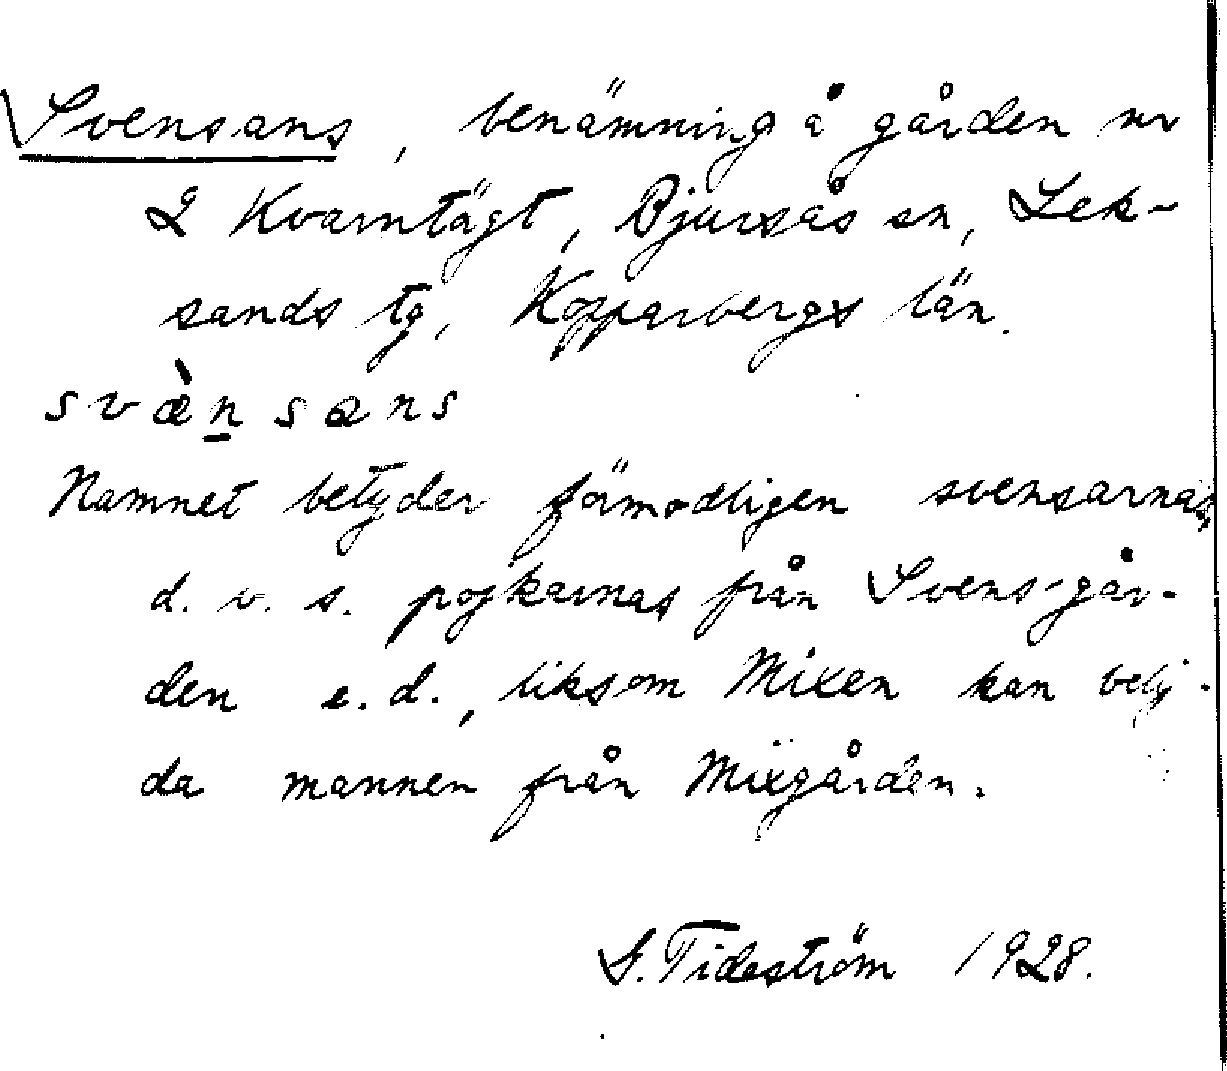 Svensans, benämning å gården nr
2 Kvarntägt, Bjursås sn, Lek-
sands tg, Kopparbergs län.
svæ̀n̠sans
Namnet betyder förmodligen svensarnas,
d. v. s. pojkarnas från Svens-går-
den e. d., liksom Mixen kan bety-
da mannen från Mixgården.
G. Tideström 1928.